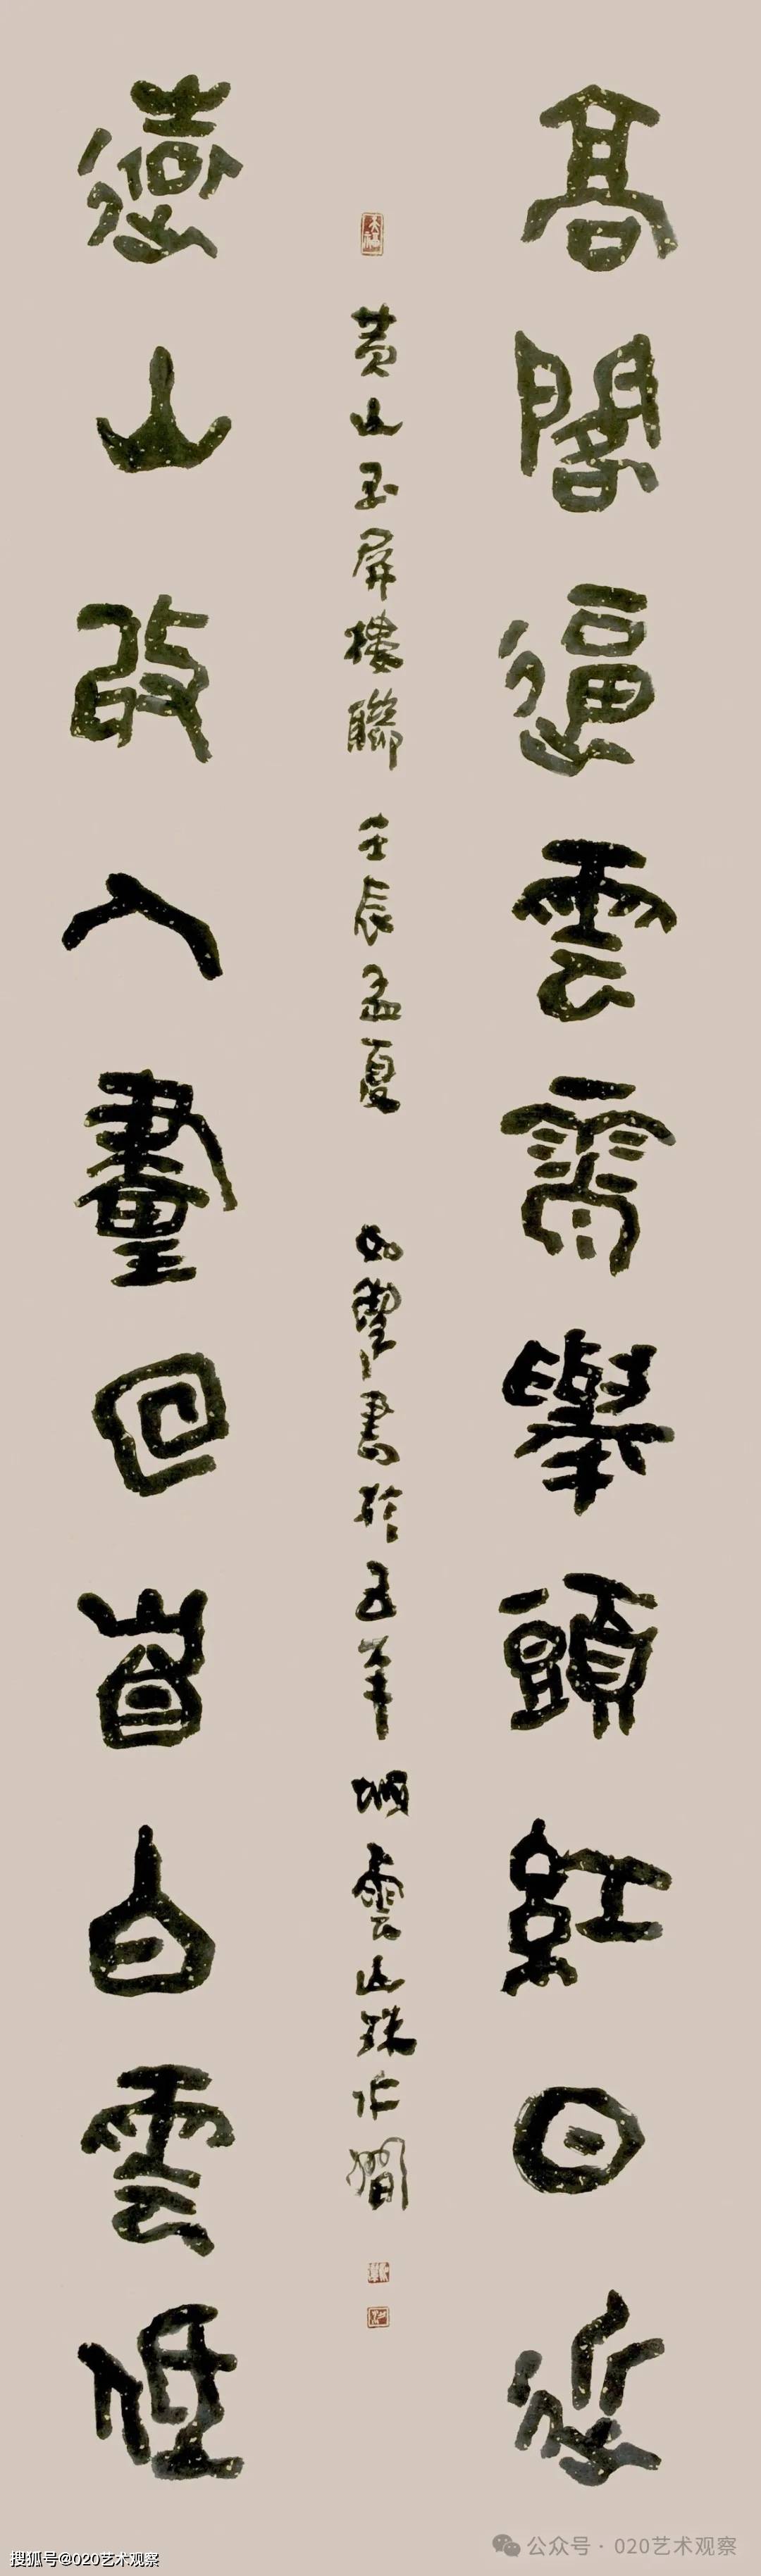 高閣逼雲霄舉頭紅日近
黃山玉屏樓聯 壬辰孟夏 書於五羊 雲山珠水間
遠山入畫回首白雲低
公众号 · 020艺术观察
搜狐号@020艺术观察